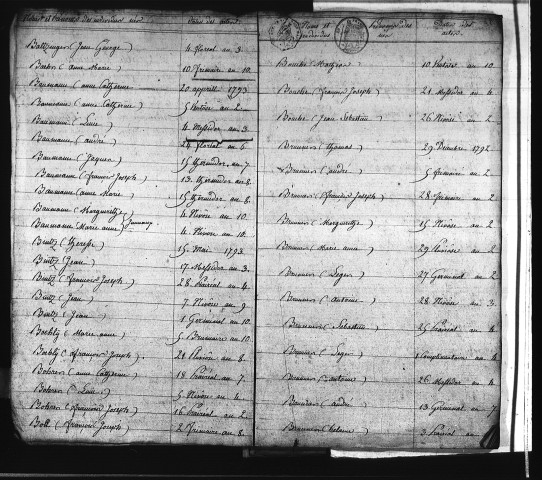 Noms et Prénoms des individus nés
Dates des actes
Battzinger (Jean George)
4. floréal an 3.
(anne Marie)
10 frimaire an 10.
Baumann (anne Catherine
20 appril 1793
Baumann (anne Catherine)
5 Ventose an 2.
Baumann (Luie)
4. Messidor an 3.
Baumann (andré)
24 floréal an 6.
Baumann (Jaques)
15 thermidor an 7
Baumann (françois Joseph)
13. thermidor an 8.
Baumann (anne Marie)
15 thermidor an 8
Baumann (Margueritte)
4 Nivose an 10.
Baumann (Marie anne) Jumeaux
4. Nivose an 10.
Bintz (therese)
15. Mai 1793.
Bintz (Jean)
17. Messidor an 3.
Bintz (françois Joseph)
28 Prairéal an 4.
Bintz (Jean)
7 Nivose an 9
Bintz (Jean)
1 Germinal an 10.
Boehly (Marie anne)
5 Brumaire an 10.
Boehly (françois Joseph)
21 Pluviose an 8.
Bohrer (anne Catherine)
18 Prairéal an 7.
Bohrer (Luie)
5 Nivose an 4
Bohrer (françois Joseph)
16 Prairéal an 2
Boll (françois Joseph)
2 frimaire an 8.
Noms et Prénoms des nés
Dattes des actes
(Mathias)
10 Ventose an 10
(françois Joseph)
21 Messidor an 4
(Jean Sebastien)
26 Nivose an 2
Brunner (thomas)
29 Decembre 1792
Brunner (andré)
5 frimaire an 2
Brunner (françois Joseph)
28 frimaire an 2
Brunner (Margueritte)
15 Nivose an 2
Brunner (Marie anne)
29 Pluviose an 2
Brunner (Leger)
27 Germinal an 2
Brunner (antoine)
28 Nivose an 3.
Brunner (Sebastien)
25 Prairéal an 4
Brunner (Leger)
Complementaire an 4
Brunner (antoine)
26 Messidor an 4
Brunner (andré)
13 Germinal an 7
Brunner (helene)
3 Prairéal an